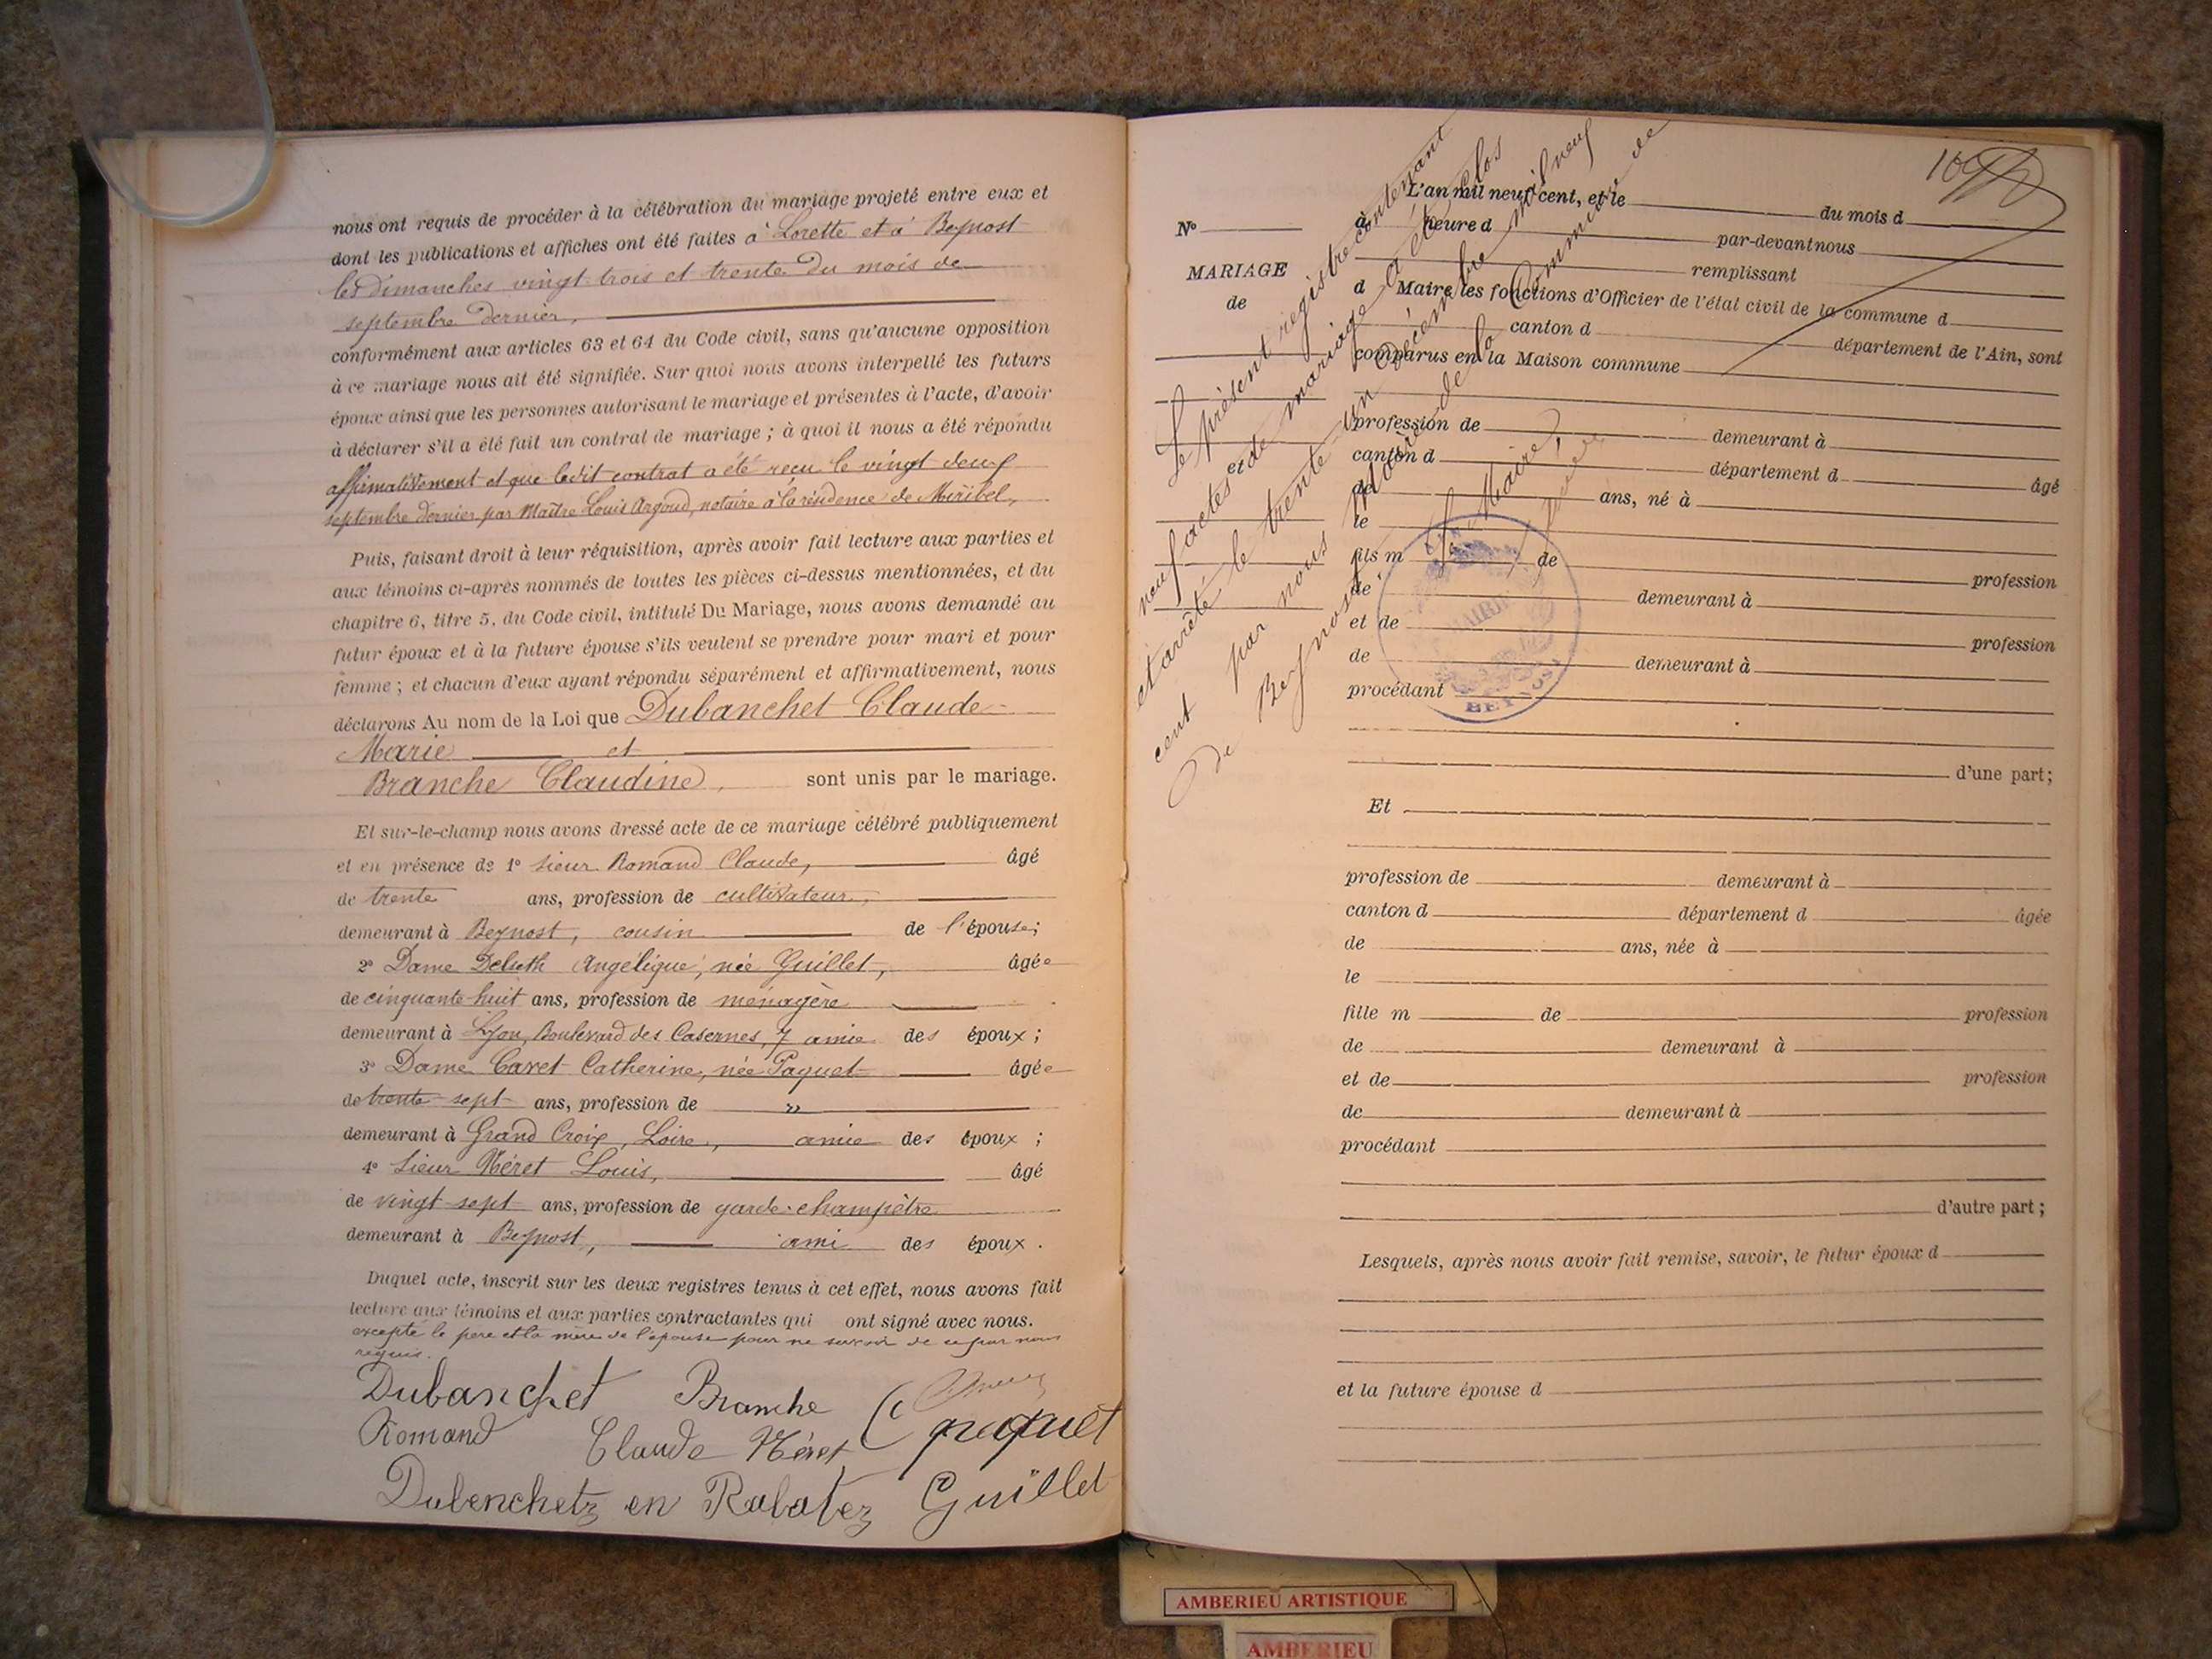 nous ont requis de procéder à la célébration du mariage projeté entre eux et
dont les publications et affiches ont été faites à Lorette et à Beynost
les Dimanches vingt-trois et trente du mois de
septembre dernier,
conformément aux articles 63 et 64 du Code civil, sans qu'aucune opposition
à ce mariage nous ait été signifiée. Sur quoi nous avons interpellé les futurs
époux ainsi que les personnes autorisant le mariage et présentes à l'acte, d'avoir
à déclarer s'il a été fait un contrat de mariage ; à quoi il nous a été répondu
affirmativement et que ledit contrat a été reçu le vingt deux
septembre dernier par Maître Louis Argoud, notaire à la résidence de Miribel,
Puis, faisant droit à leur réquisition, après avoir fait lecture aux parties et
aux témoins ci-après nommés de toutes les pièces ci-dessus mentionnées, et du
chapitre 6, titre 5, du Code civil, intitulé Du Mariage, nous avons demandé au
futur époux et à la future épouse s'ils veulent se prendre pour mari et pour
femme ; et chacun d'eux ayant répondu séparément et affirmativement, nous
déclarons Au nom de la Loi que Dubanchet Claude
Marie et
Branche Claudine, sont unis par le mariage.
Et sur-le-champ nous avons dressé acte de ce mariage célébré publiquement
et en présence de 1° sieur Romand Claude, âgé
de trente ans, profession de cultivateur,
demeurant à Beynost, cousin de l'épouse;
2° Dame Angélique, née Guillet, âgée
de cinquante huit ans, profession de ménagère
demeurant à Lyon, Boulevard des Casernes, 7 amie des époux ;
3° Dame Catherine, née Paquet âgée
de trente-sept ans, profession de "
demeurant à Grand Croix, Loire, amie des époux ;
4° Sieur Néret Louis, âgé
de vingt-sept ans, profession de garde-champêtre
demeurant à Beynost, ami des époux .
Duquel acte, inscrit sur les deux registres tenus à cet effet, nous avons fait
lecture aux témoins et aux parties contractantes qui ont signé avec nous.
excepté le père et la mère de l'épouse pour ne savoir de ce par nous
requis.
Dubanchet Branche
Romand Claude Néret C paquet
Dubenchetz en Rabatez Guillet
L'an mil neuf cent, et le du mois d
N° à heure d par-devant nous
MARIAGE remplissant
de d Maire les fonctions d'Officier de l'état civil de la commune d
canton d département de l'Ain, sont
comparus en la Maison commune
et de
profession de demeurant à
canton d département d âgé
de ans, né à
le
fils m de profession
de demeurant à
et de profession
de demeurant à
procédant
d'une part;
Le présent registre contenant
neuf actes de mariage a été clos
et arrêté le trente-un Décembre mil neuf
cent par nous Maire de la Commune de
de Beynost
Le Maire,
MAIRIE
BEYNOST
Et
profession de demeurant à
canton d département d âgée
de ans, née à
le
fille m de profession
de demeurant à
et de profession
de demeurant à
procédant
d'autre part ;
Lesquels, après nous avoir fait remise, savoir, le futur époux d
et la future épouse d
AMBERIEU ARTISTIQUE
AMBERIEU